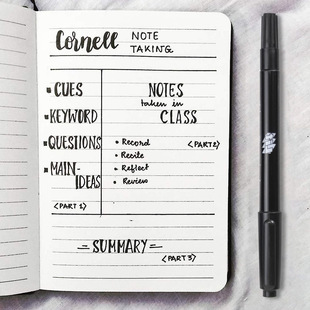 Cornell NOTE
TAKING
CUES
KEYWORD
QUESTIONS
MAIN-
IDEAS
<PART 1>
NOTES
taken in
CLASS
<PART 2>
• Record
• Recite
• Reflect
• Review
- SUMMARY -
<PART 3>